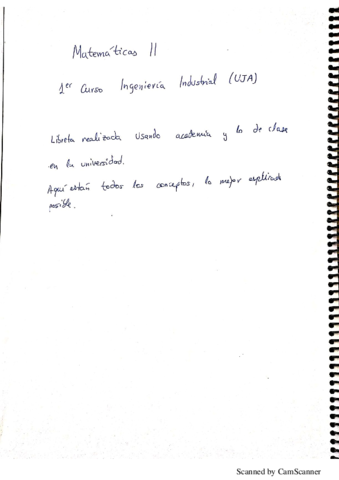 Matemáticas II
1er Curso Ingeniería Industrial (UJA)
Libreta realizada usando academia y lo de clase
en la universidad.
Aquí están todos los conceptos, lo mejor explicado
posible.
Scanned by CamScanner